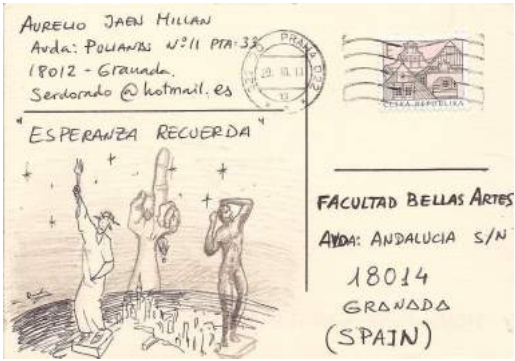 AURELIO JAEN MILLAN
Avda: POLIANAS Nº11 PTA:33
18012 - Granada.
Serdorado @ hotmail.es
PRAHA 022
ČESKÁ REPUBLIKA
"ESPERANZA RECUERDA"
FACULTAD BELLAS ARTES
AVDA: ANDALUCIA S/N
18014
GRANADA
(SPAIN)